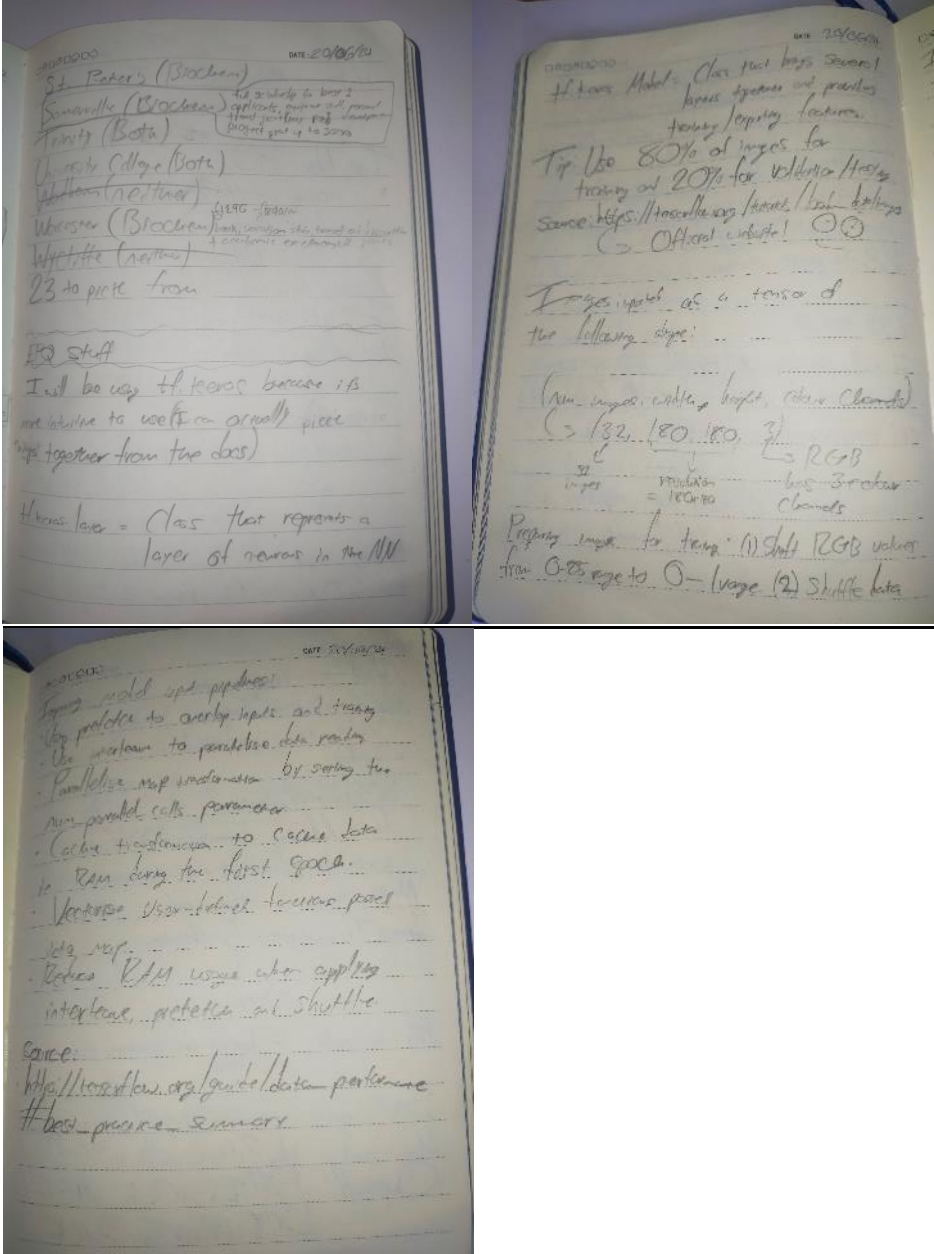 DATE: 20/06/24
St. Peter's (Biochem)
Somerville (Biochem)
applicants,
project up to
Trinity (Both)
University College (Both)
Wadham (neither)
Worcester (Biochem)
Wycliffe (neither)
23 to pick from
EPQ stuff
I will be using tf.keras because it's
more intuitive to use (I can actually piece
together from the docs)
tf.keras.layer = Class that represents a
layer of neurons in the NN
DATE 20/06/24
tf.keras.Model = Class that brings several
layers together and providing
training/exporting features.
Tip: Use 80% of images for
training and 20% for validation/testing
Source: https://tensorflow.org/tutorials/
Official website!
Images input as a tensor of
the following shape:
(num_images, width, height, colour channels)
(32, 180, 180, 3)
RGB
32
images
resolution
= 180x180
has 3 colour
channels
Preparing images for training: (1) Shift RGB values
from 0-255 range to 0-1 range (2) Shuffle data
DATE
model input pipelines:
Use prefetch to overlap inputs and training
· Use interleave to parallelise data reading
· Parallelise map transformation by setting the
num_parallel_calls parameter
· Cache transformation to cache data
in RAM during the first epoch.
· Vectorise user-defined functions passed
map.
· Reduce RAM usage when applying
interleave, prefetch and shuffle.
Source:
https://tensorflow.org/guide/data_performance
#best_practice_summary